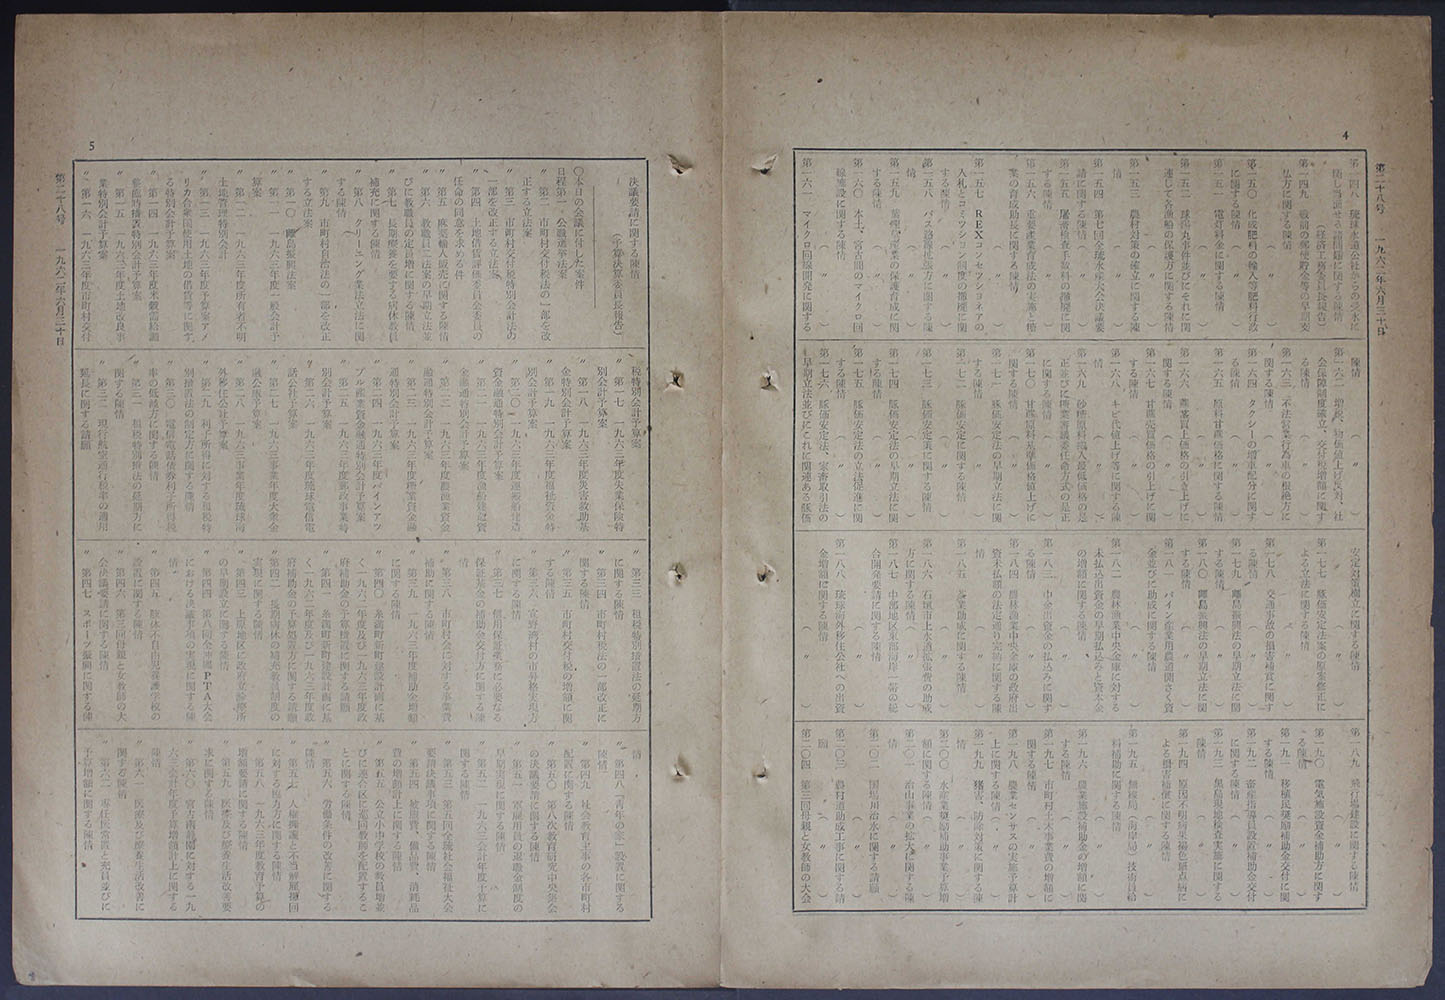 4
第二十八号 一九六二年六月三十日
第一四八 琉球水道公社からの受水に
関する陳情
(経済工務委員長報告)
第一四九 戦前の郵便貯金等の早期支
払方に関する陳情
第一五〇 化成肥料の輸入等肥料行政
に関する陳情 ( 〃 )
第一五一 電灯料金に関する陳情
第一五二 球陽丸事件並びにそれに関
連して各漁船の保護方に関する陳情
第一五三 農村対策の確立に関する陳
情
第一五四 第七回全琉水産大会決議要
請に関する陳情
第一五五 屠畜検査手数料の撤廃に関
する陳情
第一五六 重要産業育成法の実施と酪
業の育成助長に関する陳情
第一五七 REXコンセッショネアの
入札とコミッション制度の撤廃に関
する陳情
第一五八 バス路線拡張方に関する陳
情
第一五九 葉煙草産業の保護育成に関
する陳情
第一六〇 本土、宮古間のマイクロ回
線建設に関する陳情
第一六一 マイクロ回線開発に関する
陳情
第一六二 増税、物価値上げ反対、社
会保障制度確立、交付税増額に関す
る陳情
第一六三 不法営業行為車の根絶方に
関する陳情
第一六四 タクシーの増車配分に関す
る陳情
第一六五 原料甘蔗価格に関する陳情
第一六六 蔗茎買上価格の引き上げに
関する陳情
第一六七 甘蔗売買価格の引上げに関
する陳情
第一六八 キビ代値上げ等に関する陳
情
第一六九 砂糖原料購入最低価格の是
正並びに糖業審議委任命方式の是正
に関する陳情
第一七〇 甘蔗原料基準価格値上げに
関する陳情
第一七一 豚価安定法の早期立法に関
する陳情
第一七二 豚価安定に関する陳情
第一七三 豚価安定策に関する陳情
第一七四 豚価安定法の早期立法に関
する陳情
第一七五 豚価安定の立法促進に関
する陳情
第一七六 豚価安定法、家畜取引法の
早期立法並びにこれに関連ある豚価
安定対策樹立に関する陳情
第一七七 豚価安定法案の原案修正に
よる立法に関する陳情
第一七八 交通事故の損害補償に関す
る陳情
第一七九 離島振興法の早期立法に関
する陳情
第一八〇 離島振興法の早期立法に関
する陳情
第一八一 パイン産業用農道開さく資
金並びに助成に関する陳情
第一八二 農林漁業中央金庫に対する
未払込出資金の早期払込みと資本金
の増額に関する陳情
第一八三 中金出資金の払込みに関す
る陳情
第一八四 農林漁業中央金庫の政府出
資未払額の法定通り完納に関する陳
情
第一八五 茶業助成に関する陳情
第一八六 石垣市上水道拡張費の助成
方に関する陳情
第一八七 中部地区東部海岸一帯の総
合開発要請に関する陳情
第一八八 琉球海外移住公社への出資
金増額に関する陳情
第一八九 飛行場建設に関する陳情
第一九〇 電気施設資金補助方に関す
る陳情
第一九一 移植民奨励補助金交付に関
する陳情
第一九二 畜産指導員設置補助金交付
に関する陳情
第一九三 黒島現地検査実施に関する
陳情
第一九四 原因不明病菜褐色頭点病に
よる損害補償に関する陳情
第一九五 無線局(海岸局)技術員給
料補助に関する陳情
第一九六 農業施設補助金の増額に関
する陳情
第一九七 市町村土木事業費の増額に
第一九八 農業センサスの実施予算計
上に関する陳情
第一九九 猪害、防除対策に関する陳
情
第二〇〇 水産業奨励補助事業予算増
額に関する陳情
第二〇一 治山事業の拡大に関する陳
情
第二〇二 国場川治水に関する請願
第二〇三 農村道助成工事に関する請
願
第二〇四 第三回母親と女教師の大会
5
第二十八号 一九六二年六月三十日
決議要請に関する陳情
(予算決算委員長報告)
〇本日の会議に付した案件
日程第一 公職選挙法案
〃 第二 市町村交付税法の一部を改
正する立法案
〃 第三 市町村交付税特別会計法の
一部を改正する立法案
〃 第四 土地借賃評価委員会委員の
任命の同意を求める件
〃 第五 麻薬輸入販売に関する陳情
〃 第六 教職員二法案の早期立法並
びに教職員の定員増に関する陳情
〃 第七 長期療養を要する病休教員
補充に関する陳情
〃 第八 クリーニング業法立法に関
する陳情
〃 第九 市町村自治法の一部を改正
する立法案
〃 第一〇 離島振興法案
〃 第一一 一九六三年度一般会計予
算案
〃 第一二 一九六三年度所有者不明
土地管理特別会計
〃 第一三 一九六三年度予算案アメ
リカ合衆国使用土地の借賃等に関す
る特別会計予算案
〃 第一四 一九六三年度米穀需給調
整臨時措置特別会計予算案
〃 第一五 一九六三年度土地改良事
業特別会計予算案
〃 第一六 一九六三年度市町村交付
税特別会計予算案
〃 第一七 一九六三年度失業保険特
別会計予算案
〃 第一八 一九六三年度災害救助基
金特別会計予算案
〃 第一九 一九六三年度租抵資金特
別会計予算案
〃 第二〇 一九六三年度運搬船建造
資金融通特別会計予算案
〃 第二一 一九六三年度漁船建造資
金融通特別会計予算案
〃 第二二 一九六三年度農漁業資金
融通特別会計予算案
〃 第二三 一九六三年度産業資金融
通特別会計予算案
〃 第二四 一九六三年度パインアッ
プル産業資金融通特別会計予算案
〃 第二五 一九六三年度郵政事業特
別会計予算案
〃 第二六 一九六三年度琉球電信電
話公社予算案
〃 第二七 一九六三事業年度大衆金
融公庫予算案
〃 第二八 一九六三事業年度琉球海
外移住公社予算案
〃 第二九 利子所得に対する租税特
別措置法の制定方に関する陳情
〃 第三〇 電信電話債券利子所得税
率の低減方に関する陳情
〃 第三一 租税特別措法の延期方に
関する陳情
〃 第三二 現行航空通行税率の適用
延長に関する請願
〃 第三三 租税特別措置法の延期方
に関する陳情
〃 第三四 市町村税法の一部改正に
関する陳情
〃 第三五 市町村交付税の増額に関
する陳情
〃 第三六 宜野湾村の市昇格実現方
に関する陳情
〃 第三七 信用保証業務に必要なる
保証基金の補助金交付方に関する陳
情
〃 第三八 市町村会に対する事業費
補助に関する陳情
〃 第三九 一九六三年度補助金増額
に関する陳情
〃 第四〇 糸満町新町建設計画に基
く一九六二年度及び一九六三年度政
府補助金の予算措置に関する請願
〃 第四一 糸満町新町建設計画に基
く一九六二年度及び一九六三年度政
府補助金の予算処置方に関する請願
〃 第四二 長期病休の補充教員制度の
実現に関する陳情
〃 第四三 上原地区に政府立診療所
の早期設立に関する陳情
〃 第四四 第八回全沖縄PTA大会
における決議事項の実現に関する陳
情
〃 第四五 肢体不自由児養護学校の
設置に関する陳情
〃 第四六 第三回母親と女教師の大
会決議要請に関する陳情
〃 第四七 スポーツ振興に関する陳
情
〃 第四八 「青年の家」設置に関する
陳情
〃 第四九 社会教育主事の各市町村
配置に関する陳情
〃 第五〇 第八次教育研究中央集会
の決議要請に関する陳情
〃 第五一 軍雇用員の退職金制度の
早期実現に関する陳情
〃 第五二 一九六三会計年度予算に
関する陳情
〃 第五三 第五回全琉社会福祉大会
要請決議事項に関する陳情
〃 第五四 被服費、備品費、消耗品
費の増額計上に関する陳情
〃 第五五 公立小中学校の教員増並
びに連合区に巡回教師を配置するこ
とに関する陳情
〃 第五六 労働条件の改善に関する
陳情
〃 第五七 人権擁護と不当解雇撤回
に対する尽力方に関する陳情
〃 第五八 一九六三年度教育予算の
増額要請に関する陳情
〃 第五九 医療及び療養生活改善要
求に関する陳情
〃 第六〇 宮古南静園に対する一九
六三会計年度予算増額計上に関する
陳情
〃 第六一 医療及び療養生活改善に
関する陳情
〃 第六二 専任医常置と充員並びに
予算増額に関する陳情